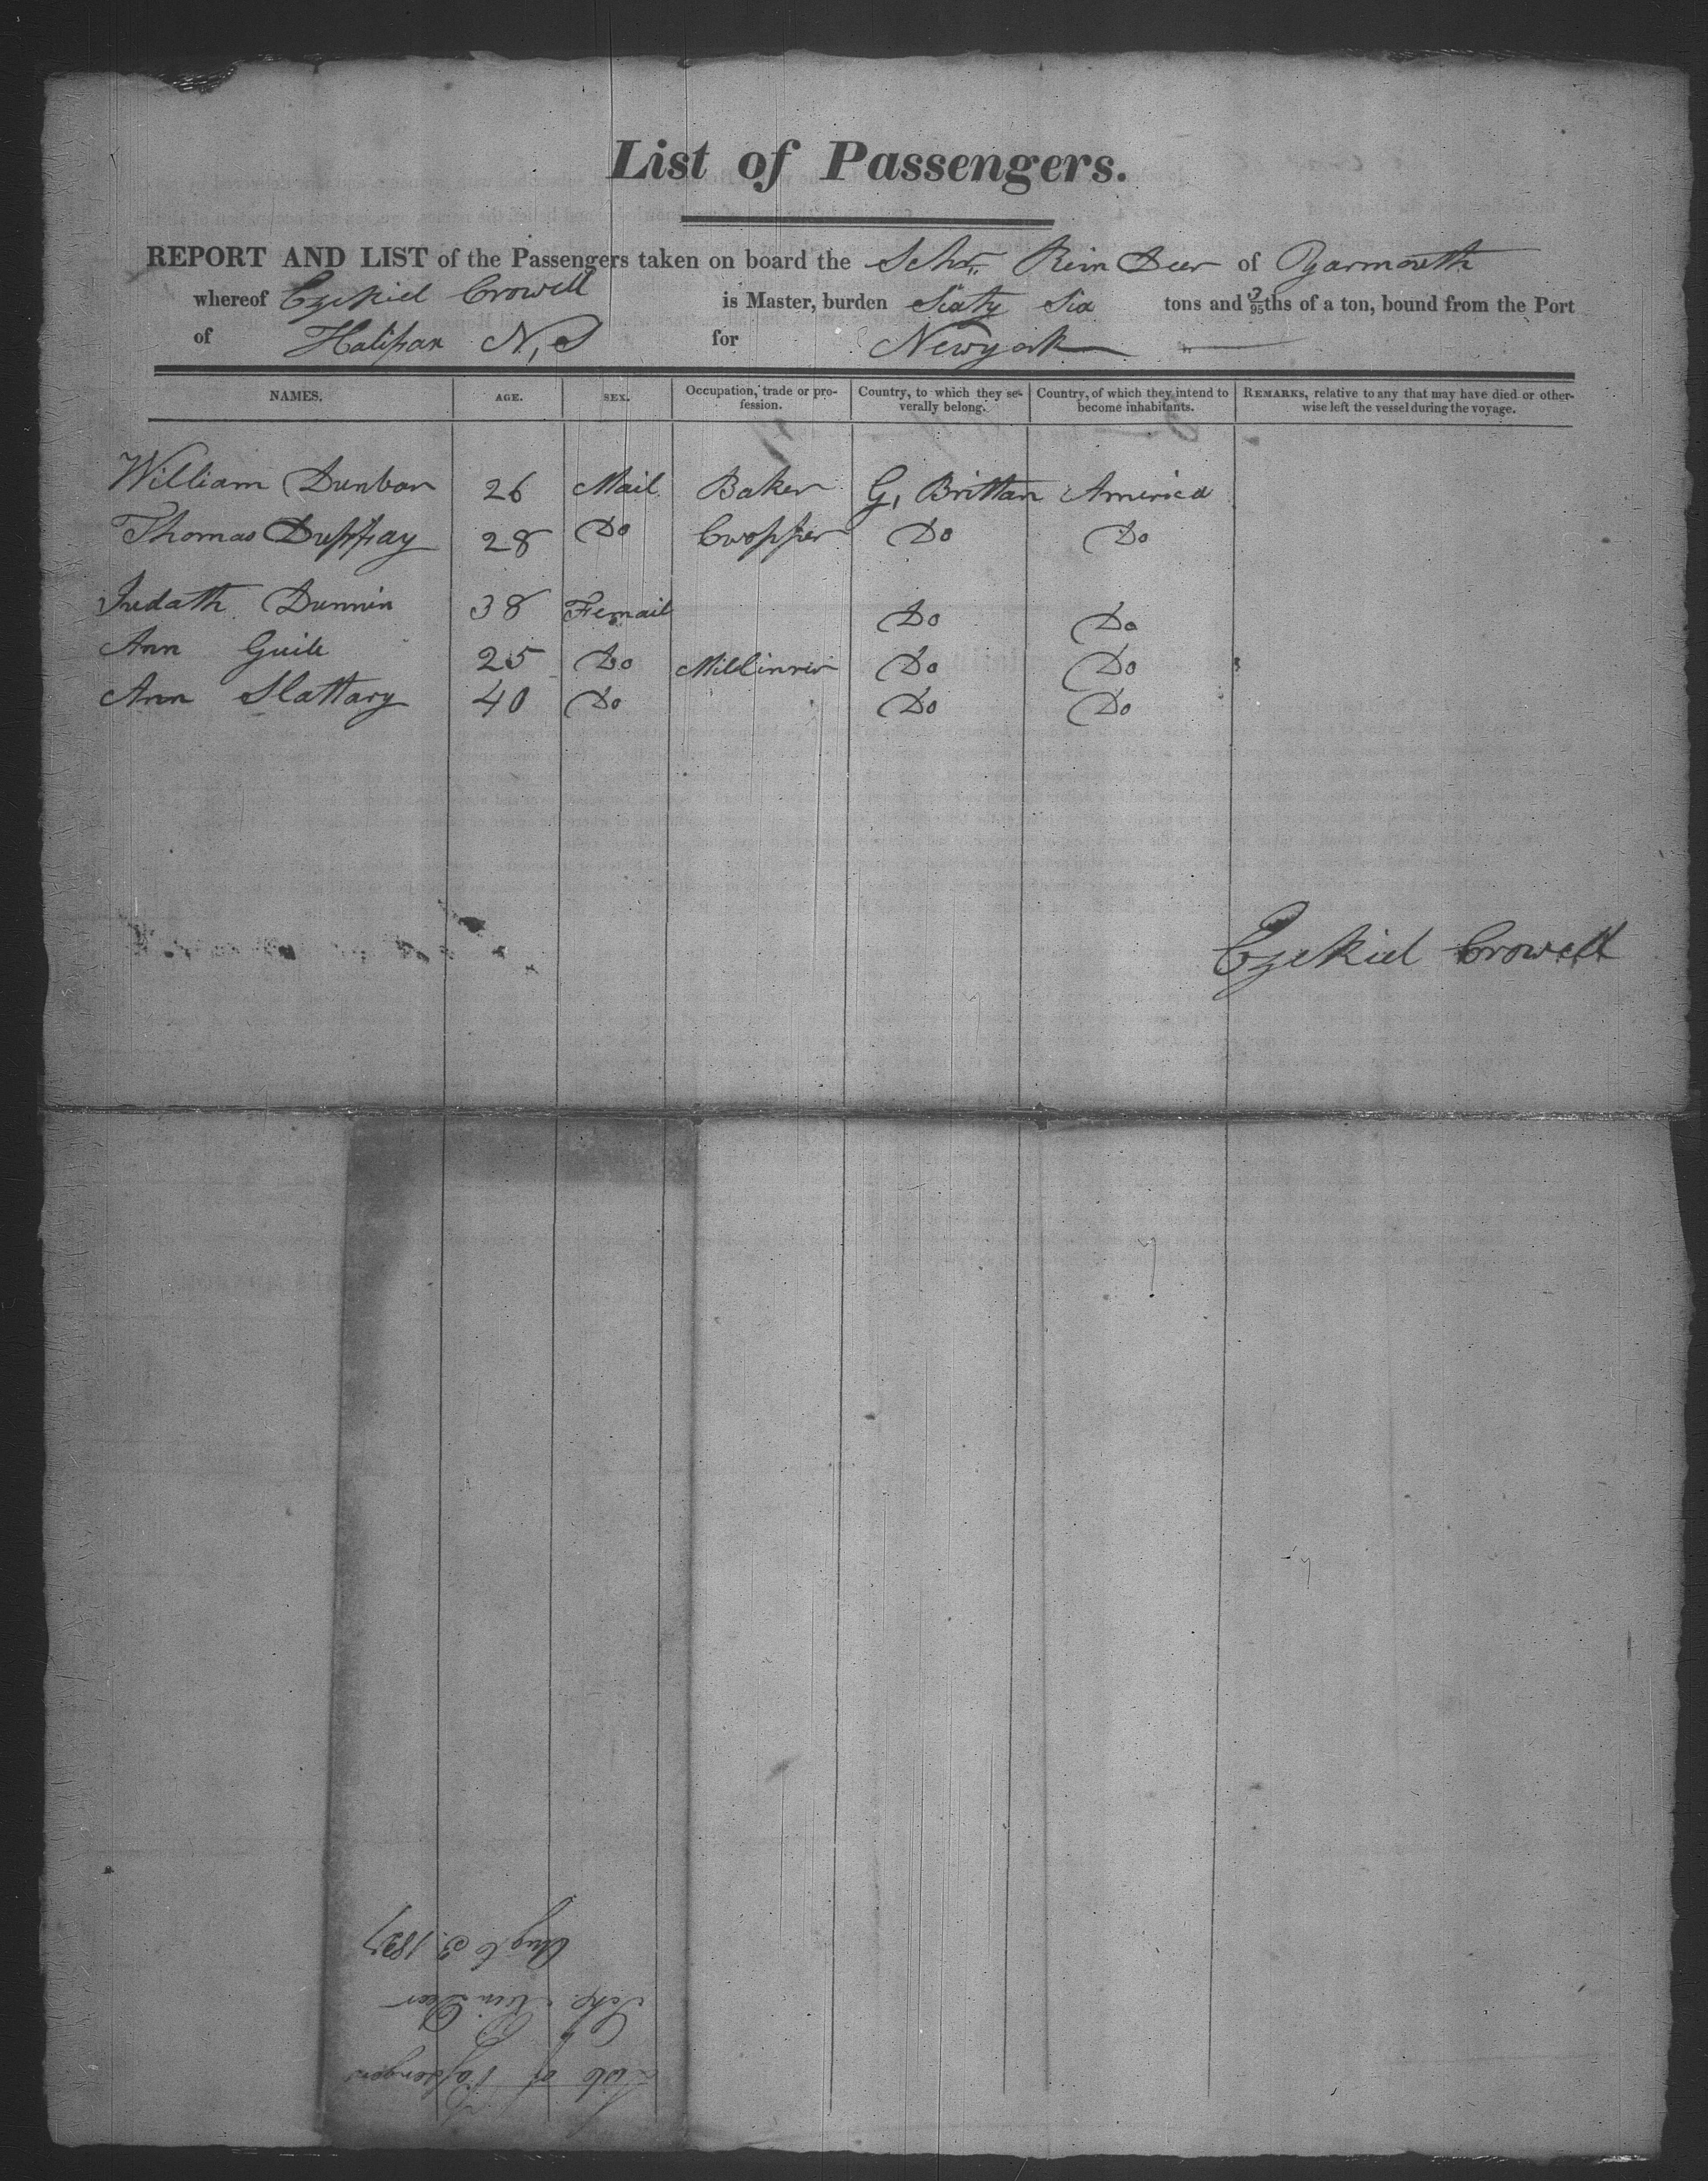 List of Passengers.
REPORT AND LIST of the Passengers taken on board the Schr. Rein Deer of Yarmouth
whereof Ezekiel Crowell is Master, burden Sixty Six tons and 3/95ths of a ton, bound from the Port
of Halifax N,S for Newyork
NAMES. AGE. SEX. Occupation, trade or profession. Country, to which they severally belong. Country, of which they intend to become inhabitants. REMARKS, relative to any that may have died or otherwise left the vessel during the voyage.
William Dunbar 26 Mail Baker G, Brittan America
Thomas Duffay 28 Do Cwopper Do Do
Judath Dunnin 38 Femail Do Do
Ann Guile 25 Do Millinner Do Do
Ann Slattary 40 Do Do Do
Ezekiel Crowell
List of Passengers
Schr. Rein Deer
Augt 3. 1837